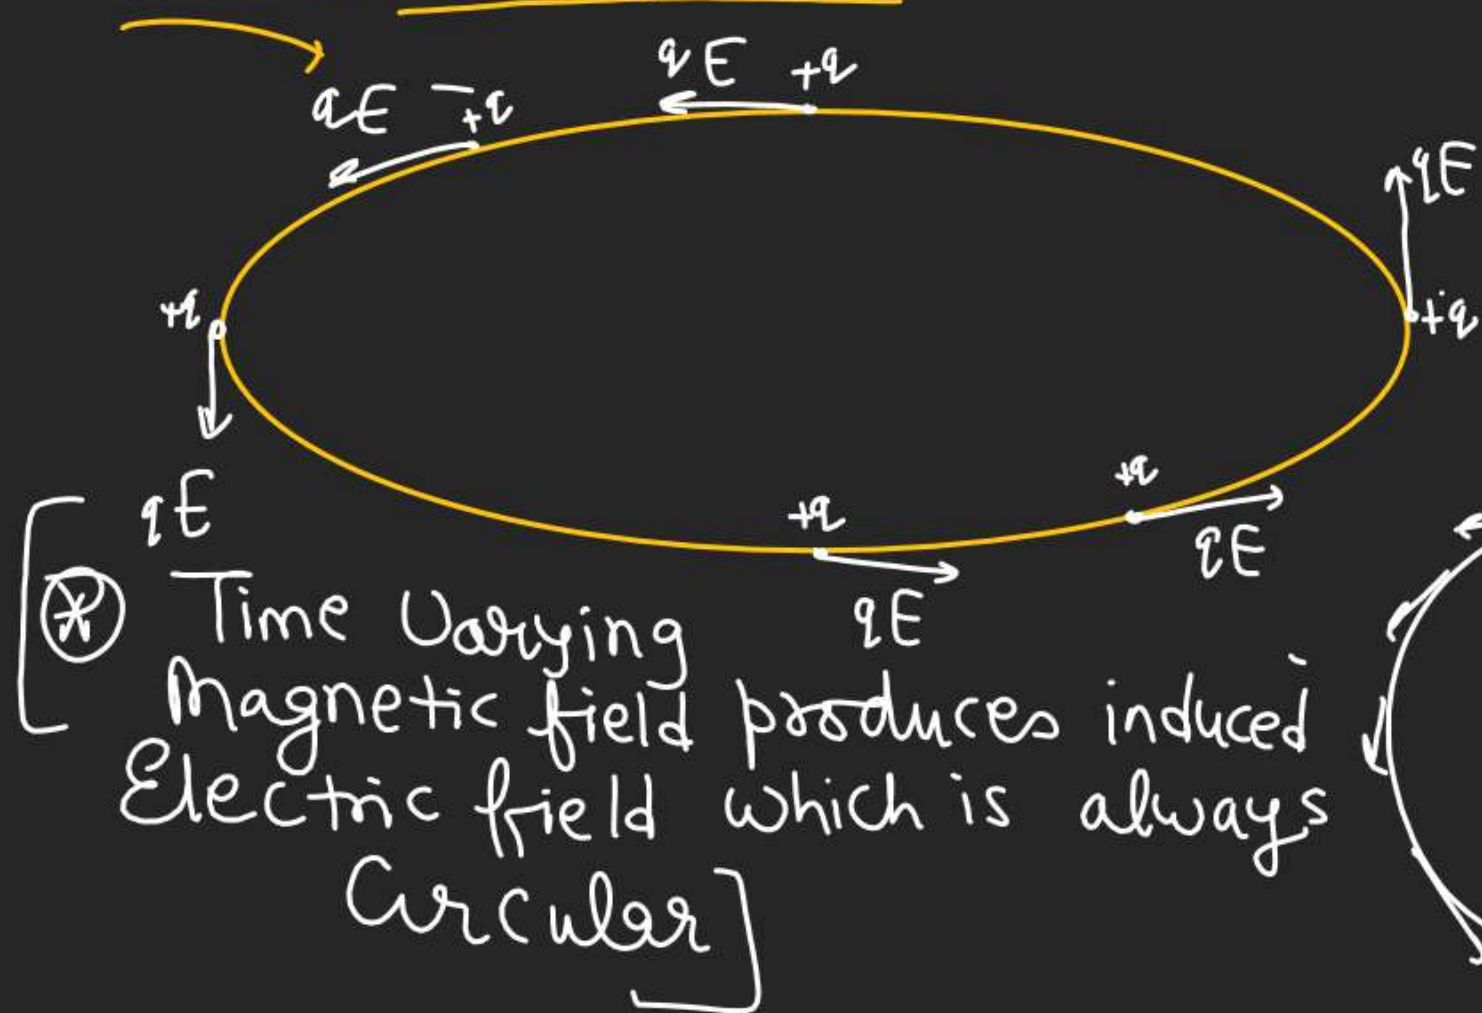 qE +q
qE +q
qE
+q
+q
qE
+q
+q
qE
qE
* Time Varying
Magnetic field produces induced
Electric field which is always
Circular]